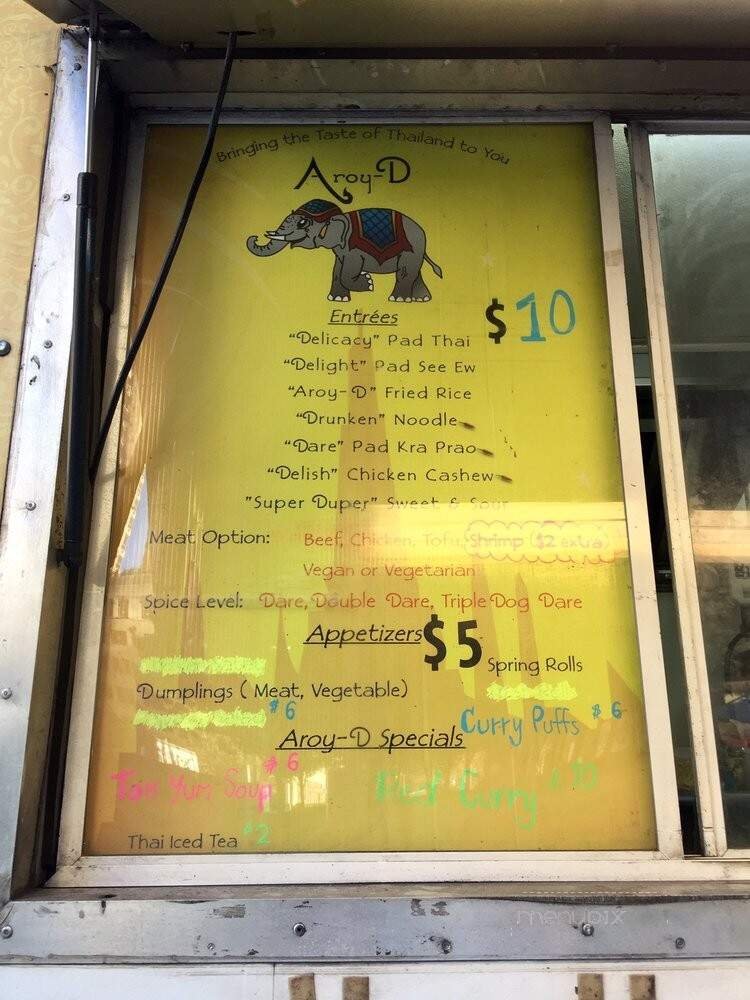 Bringing the Taste of Thailand to You
Aroy-D
Entrées $10
"Delicacy" Pad Thai
"Delight" Pad See Ew
"Aroy-D" Fried Rice
"Drunken" Noodle
"Dare" Pad Kra Prao
"Delish" Chicken Cashew
"Super Duper" Sweet & Sour
Meat Option: Beef, Chicken, Tofu, Shrimp ($2 extra)
Vegan or Vegetarian
Spice Level: Dare, Double Dare, Triple Dog Dare
Appetizers $5
Spring Rolls
Dumplings ( Meat, Vegetable)
$6
Curry Puffs $6
Aroy-D Specials
Tom Yum Soup $6
Red Curry $10
Thai Iced Tea $2
menupix